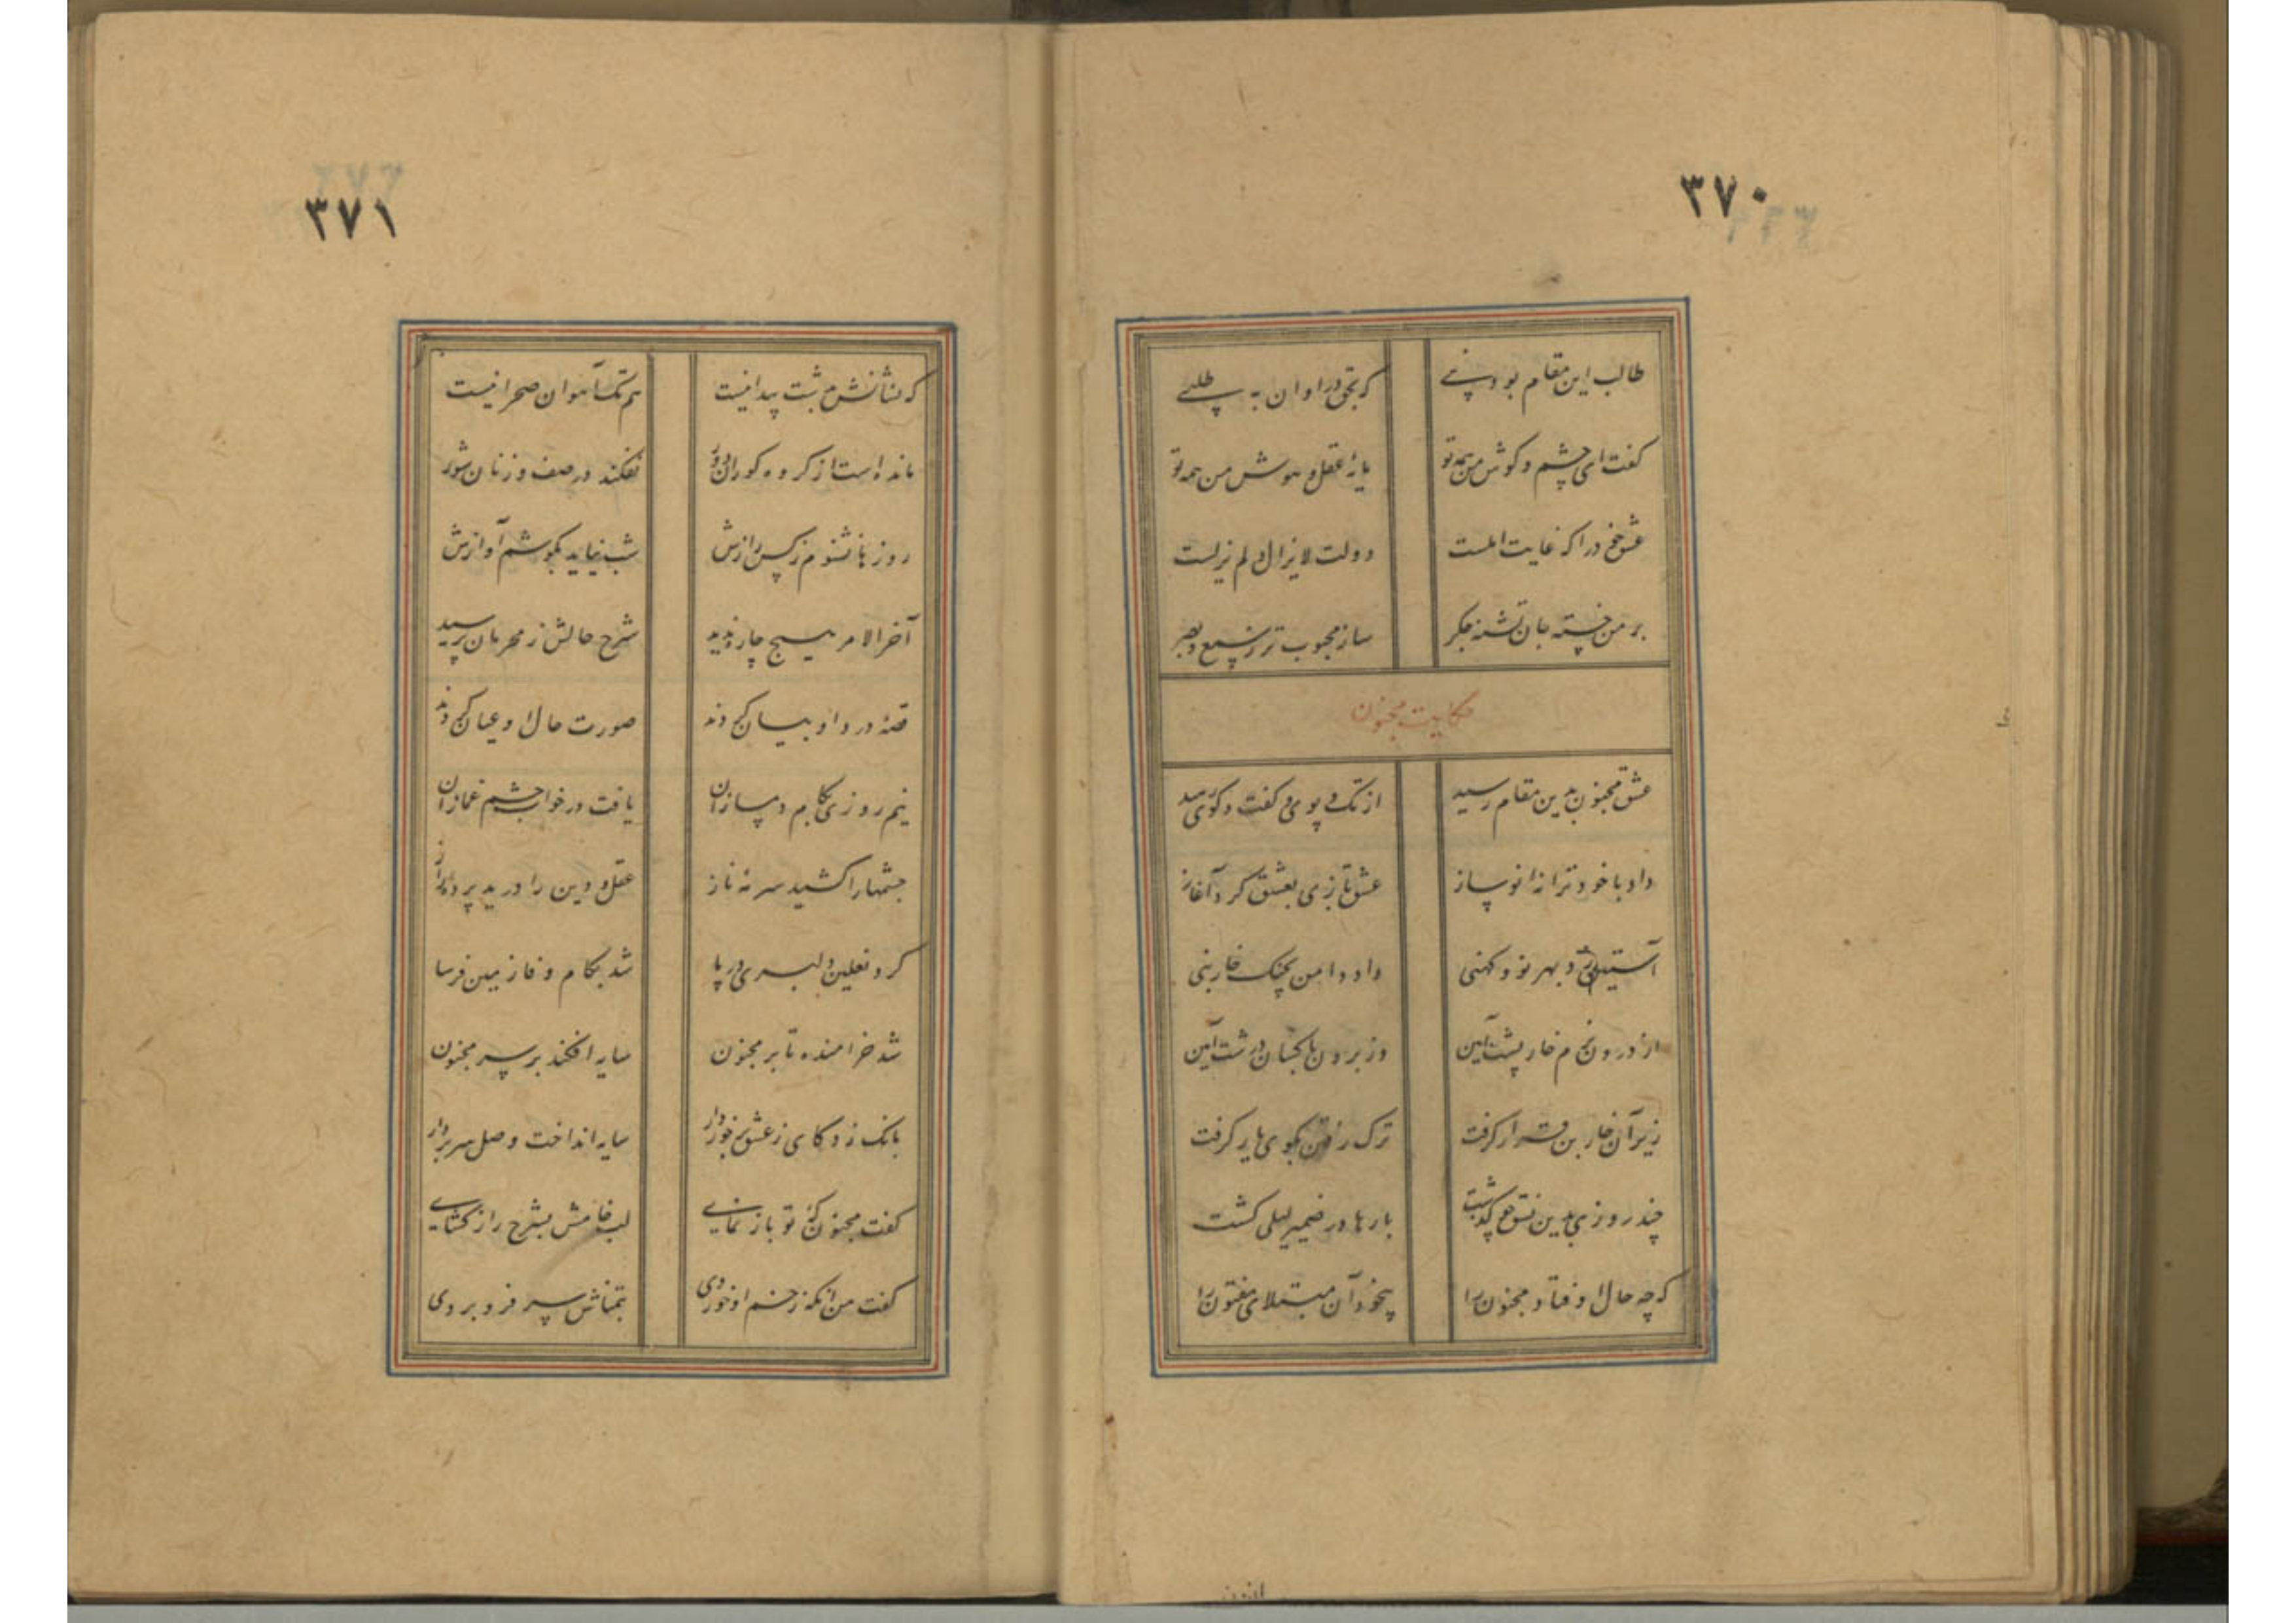 ۳۷۰
طالب این مقام بود نبی
که بحق در اوان به طلبی
گفت ای چشم و گوش من همه تو
مایهٔ عقل و هوش من همه تو
عشق خود را که غایت املست
دولت لایزال و لم یزلست
بر من خسته جان تشنه جگر
ساز محبوب تر ز سمع و بصر
حکایت مجنون
عشق مجنون بدین مقام رسید
از تک و پوی و گفت و گوی رمید
داد با خود ترانه نو ساز
عشقبازی بعشق کرد آغاز
آستین زد بهر نو و کهنی
داد دامن بچنگ خاربنی
از درون نرم خارپشت آیین
وز برون با کسان درشت آیین
زیر آن خاربن قرار گرفت
ترک رفتن بکوی یار گرفت
چند روزی بدین نسق چو گذشت
بارها در ضمیر لیلی گشت
که چه حال اوفتاد مجنون را
بیخود آن مبتلای مفتون را
۳۷۱
که نشانش بدشت پیدا نیست
هم تک آهوان صحرا نیست
مانده است از گروه کوران دور
نفکند در صف وزنان شور
روزها نشنوم ز کس رازش
شب نیاید بگوشم آوازش
آخر الامر هیچ چاره ندید
شرح حالش ز محرمان پرسید
قصهٔ درد او بیان کردند
صورت حال او عیان کردند
نیم روزی بکام دمسازان
یافت در خواب چشم غمازان
چشمها را کشید سرمهٔ ناز
عقل و دین را درید پردهٔ راز
کرد نعلین دلبری در پا
شد بگام وفا زمین فرسا
شد خرامنده تا بر مجنون
سایه افکند بر سر مجنون
بانگ زد کای ز عشق برخوردار
سایه انداخت وصل سر بردار
گفت مجنون که تو باز نمای
لب خامش بشرح راز گشای
گفت من آنکه زخم او خوردی
بتمناش سر فرو بردی